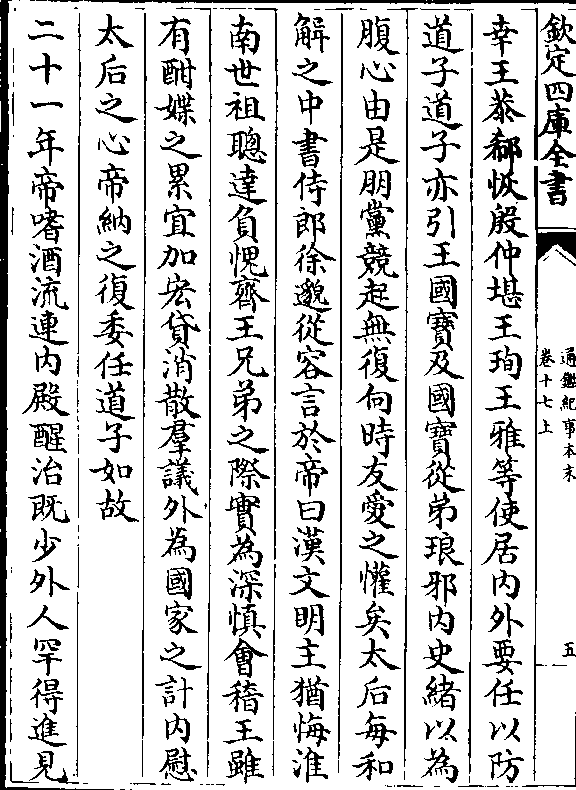 欽定四庫全書
通鑑紀事本末
卷十七上
五
幸王恭郗恢殷仲堪王珣王雅等使居内外要任以防
道子道子亦引王國寶及國寶從弟琅邪内史緒以為
腹心由是朋黨競起無復向時友愛之懽矣太后每和
解之中書侍郎徐邈從容言於帝曰漢文明主猶悔淮
南世祖聰達負愧齊王兄弟之際實為深慎會稽王雖
有酣媟之累宜加宏貸消散羣議外為國家之計内慰
太后之心帝納之復委任道子如故
二十一年帝嗜酒流連内殿醒治既少外人罕得進見